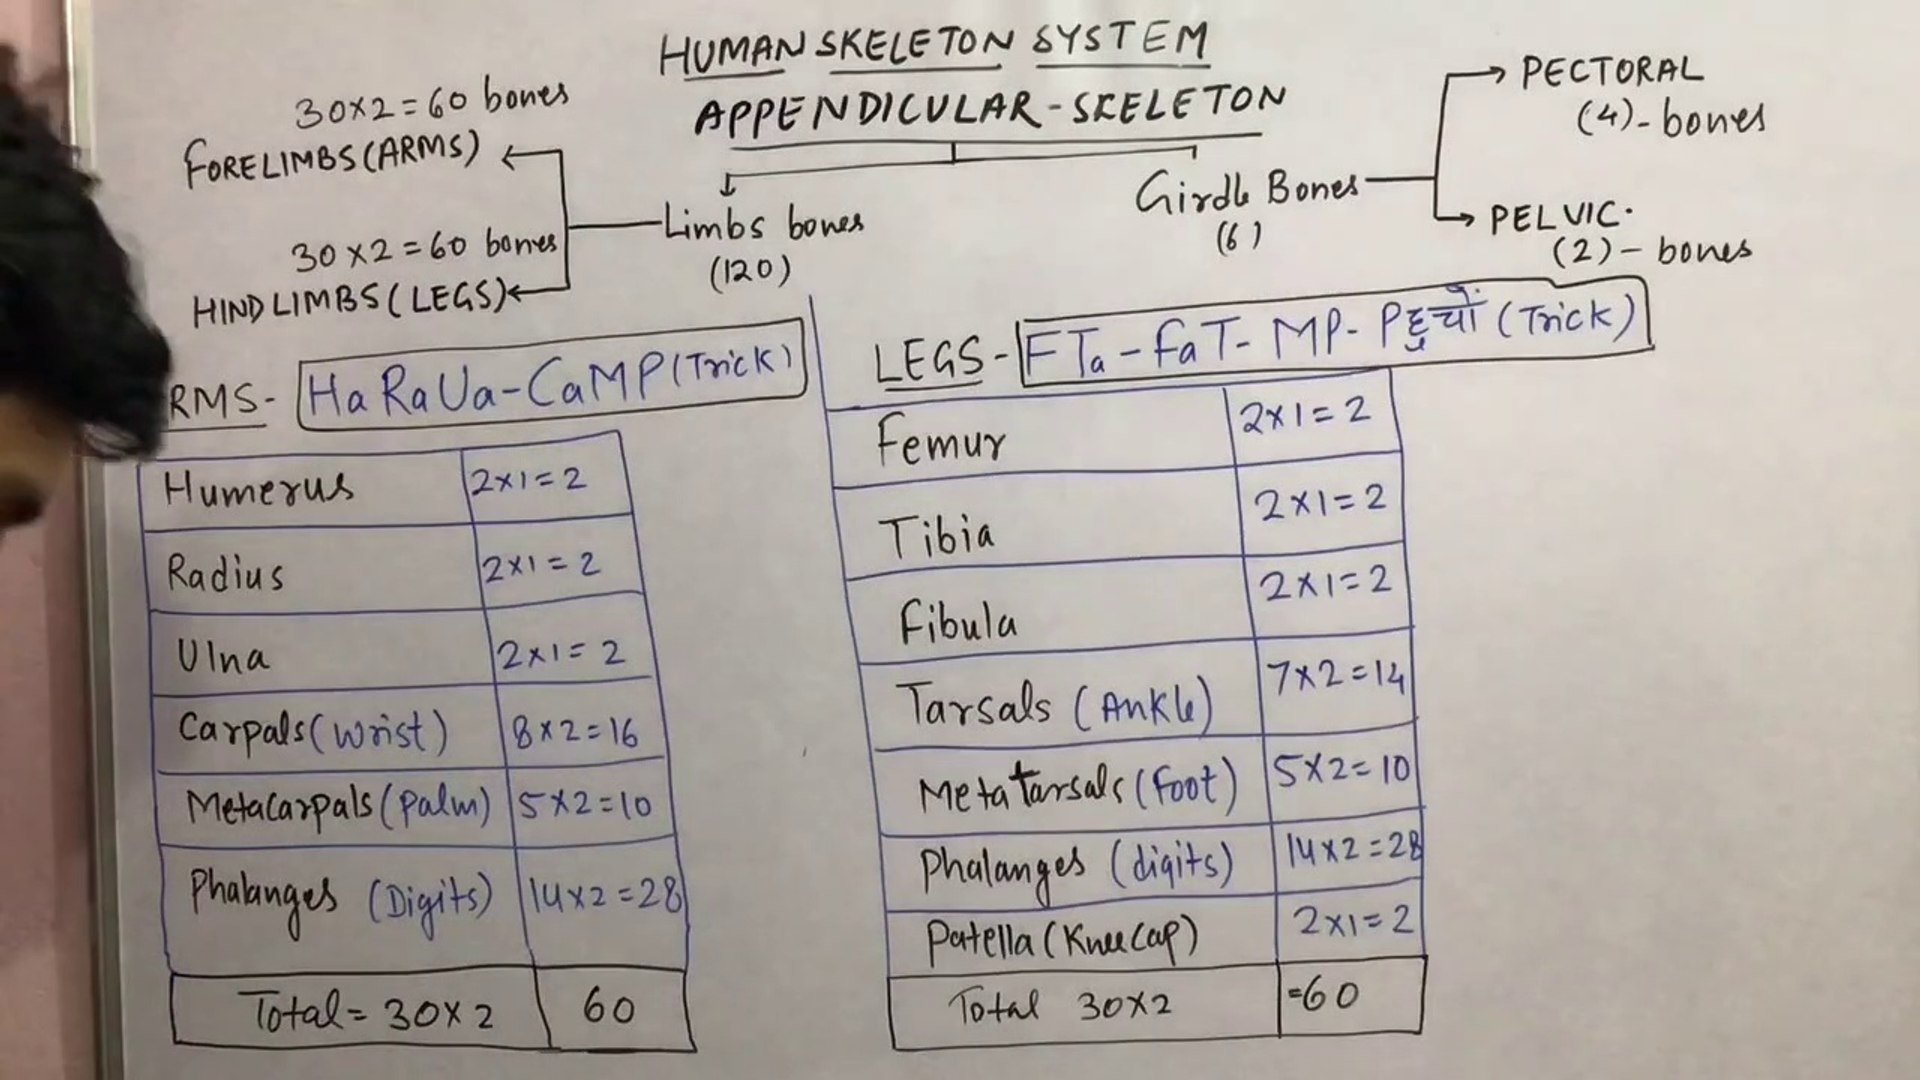 HUMAN SKELETON SYSTEM
APPENDICULAR-SKELETON
30×2=60 bones
FORELIMBS(ARMS)
30×2=60 bones
HINDLIMBS(LEGS)
Limbs bones
(120)
Girdle Bones
(6)
PECTORAL
(4)-bones
PELVIC.
(2)-bones
RMS- HaRaUa-CaMP(Trick)
Humerus 2×1=2
Radius 2×1=2
Ulna 2×1=2
Carpals(Wrist) 8×2=16
Metacarpals(Palm) 5×2=10
Phalanges (Digits) 14×2=28
Total=30×2 60
LEGS- FTa-FaT-MP-Pहुचो (Trick)
Femur 2×1=2
Tibia 2×1=2
Fibula 2×1=2
Tarsals (Ankle) 7×2=14
Metatarsals(Foot) 5×2=10
Phalanges (digits) 14×2=28
Patella(KneeCap) 2×1=2
Total 30×2 =60